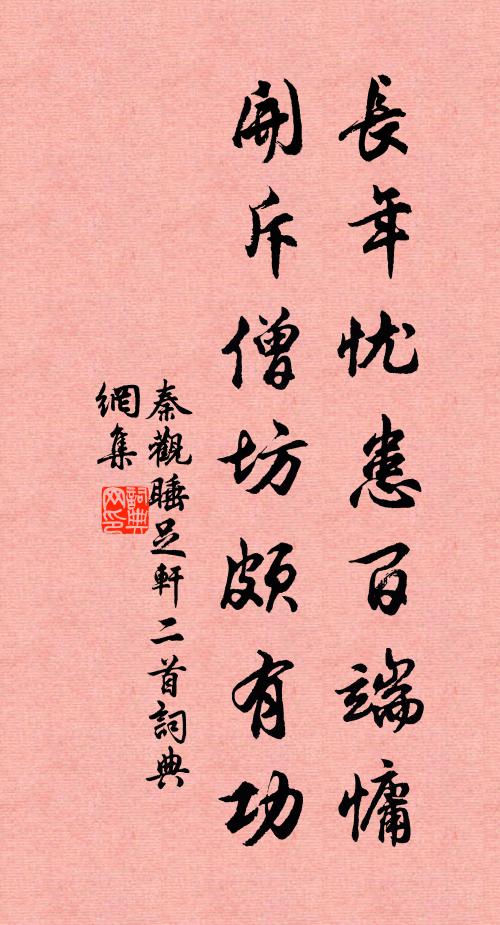 長年忧患百端慵
開斥僧坊頗有功
秦觀睡足軒二首詞典
網集
詞典
网印